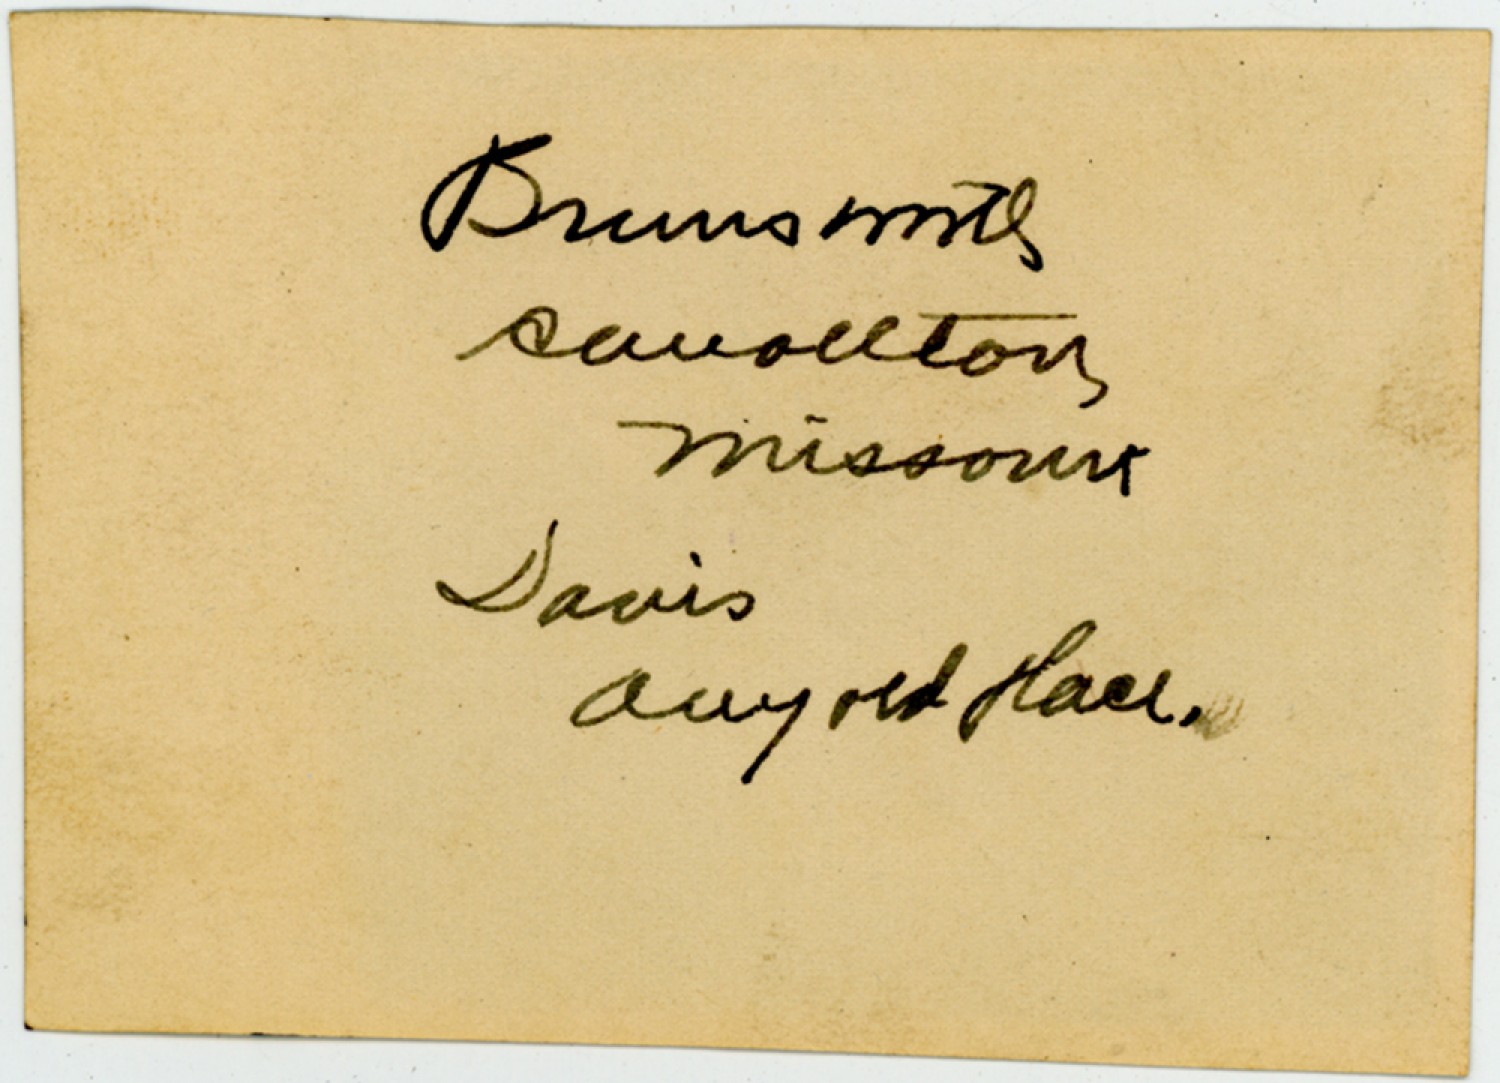 Brunsworth
Carrollton
Missouri
Davis
any old place.